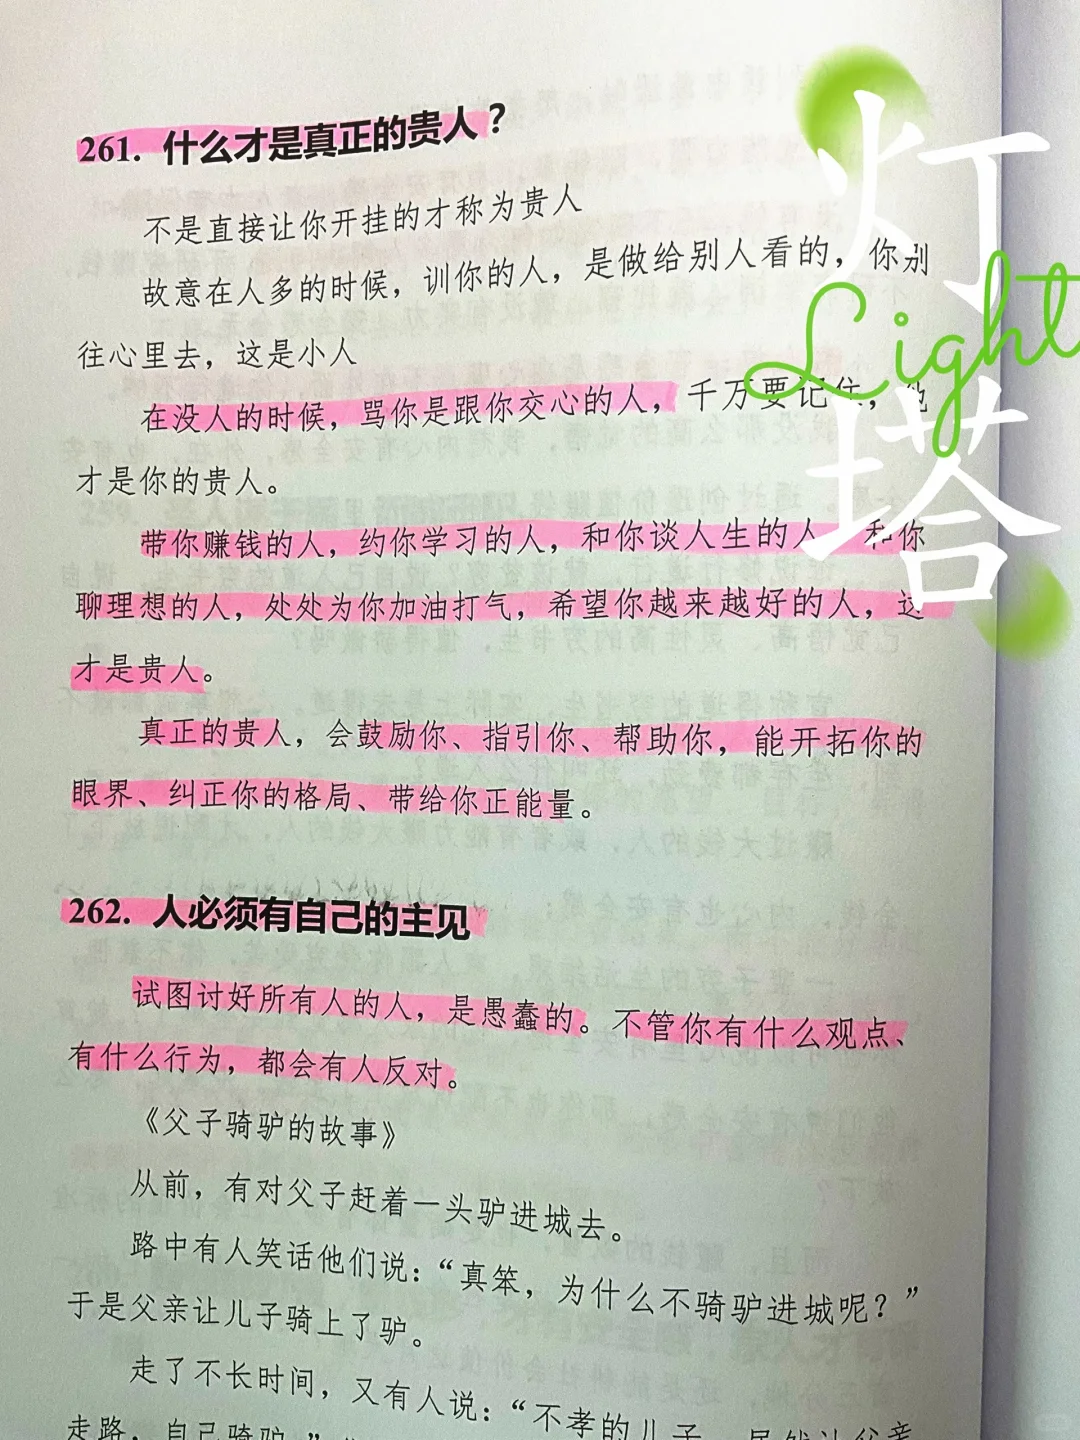 灯
Light
塔
261. 什么才是真正的贵人？
不是直接让你开挂的才称为贵人
故意在人多的时候，训你的人，是做给别人看的，你别
往心里去，这是小人
在没人的时候，骂你是跟你交心的人，千万要记住，他
才是你的贵人。
带你赚钱的人，约你学习的人，和你谈人生的人，和你
聊理想的人，处处为你加油打气，希望你越来越好的人，这
才是贵人。
真正的贵人，会鼓励你、指引你、帮助你，能开拓你的
眼界、纠正你的格局、带给你正能量。
262. 人必须有自己的主见
试图讨好所有人的人，是愚蠢的。不管你有什么观点、
有什么行为，都会有人反对。
《父子骑驴的故事》
从前，有对父子赶着一头驴进城去。
路中有人笑话他们说：“真笨，为什么不骑驴进城呢？”
于是父亲让儿子骑上了驴。
走了不长时间，又有人说：“不孝的儿子，居然让父亲
走路，自己骑驴。”